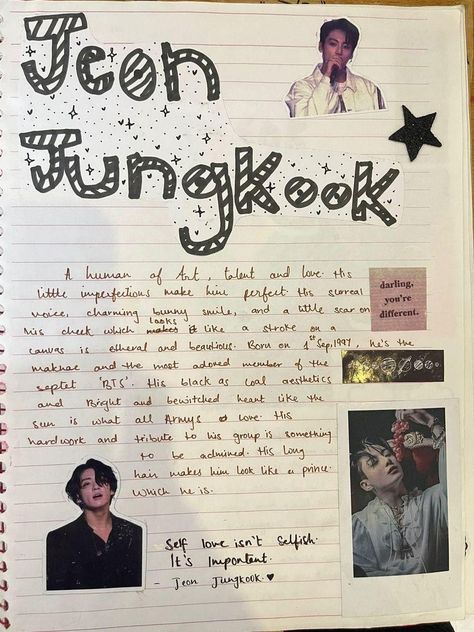 Jeon
Jungkook
A human of Art, talent and love. His
little imperfections make him perfect. His surreal
voice, charming bunny smile, and a little scar on
his cheek which looks like a stroke on a
canvas is etheral and beautious. Born on 1st Sep, 1997, he's the
maknae and the most adored member of the
septet 'BTS'. His black as coal aesthetics
and Bright and bewitched heart like the
sun is what all Armys love. His
hardwork and tribute to his group is something
to be admired. His long
hair makes him look like a prince.
Which he is.
darling,
you're
different.
Self love isn't selfish.
It's important.
- Jeon Jungkook.